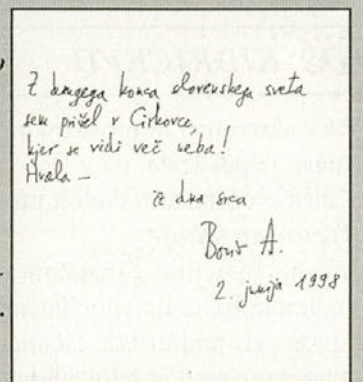 Z drugega konca slovenskega sveta
sem prišel v Cirkovce,
kjer se vidi več neba!
Hvala —
iz dna srca
Boris A.
2. junija 1998